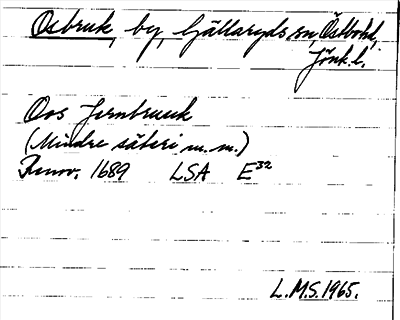 Osbruk, by, Gällaryds sn, Östbo hd,
Jönk. l.
Oos Jernbruuk
(Mindre säteri m.m.)
Renov. 1689 LSA E³²
L.M.S. 1965.